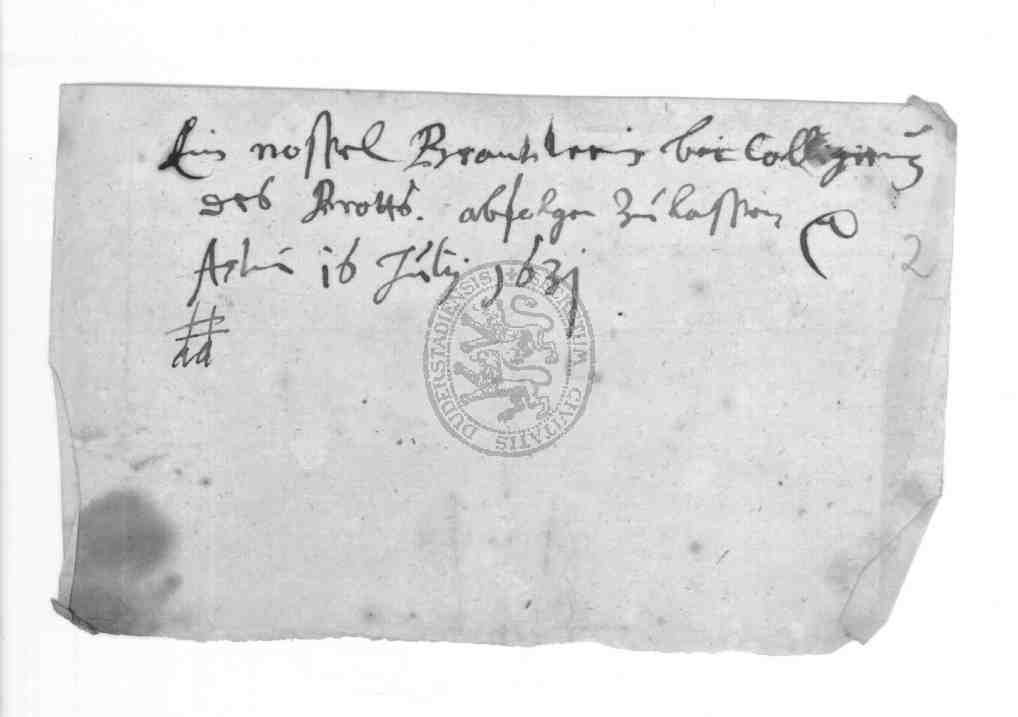 Ein nossel Brantwein bei Colligirung
des Brotts. abfolgen zu lassen
Actum 16 July 1631
2
SECRETUM CIVITATIS DUDERSTADIENSIS